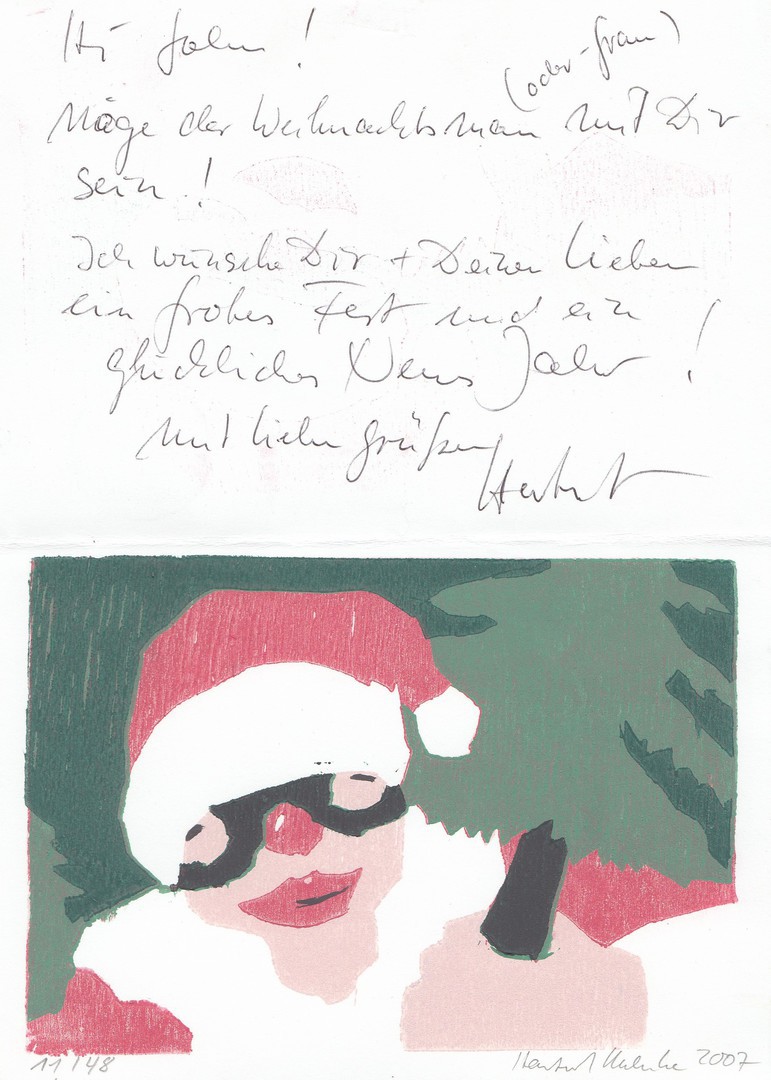 Hi John !
(oder -frau)
Möge der Weihnachtsmann mit Dir
sein !
Ich wünsche Dir + Deinen Lieben
ein frohes Fest und ein
glückliches Neues Jahr !
Mit lieben Grüßen
Herbert
11/48
Herbert 2007